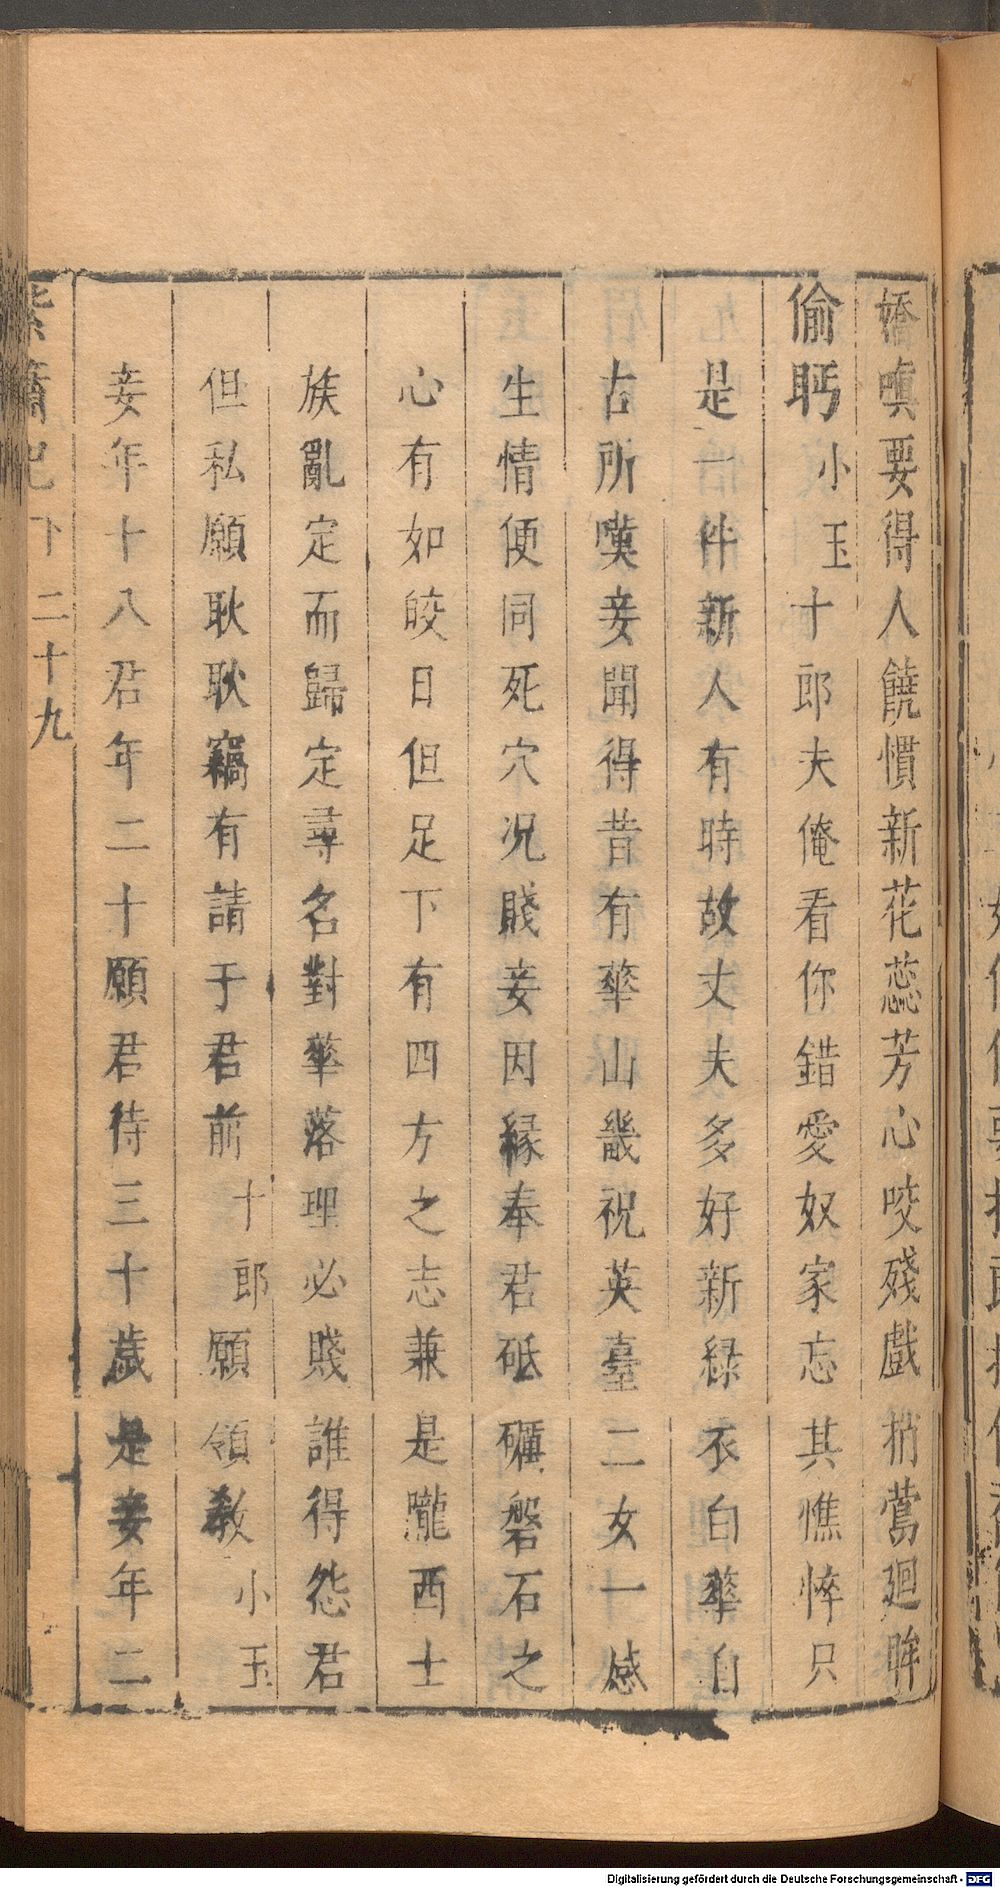 嬌嗔要得人饒慣新花蕊芳心咬殘戲捎鶯廻眸
偷眄小玉十郎夫俺看你錯愛奴家忘其憔悴只
是一件新人有時故丈夫多好新綠衣白華自
古所嘆妾聞得昔有華山畿祝英臺二女一感
生情便同死穴况賤妾因緣奉君砥礪磐石之
心有如皎日但足下有四方之志兼是隴西士
族亂定而歸定尋名對華落理必賤誰得怨君
但私願耿耿竊有請于君前十郎願領教小玉
妾年十八君年二十願君待三十歲是妾年二
紫簫記 下 二十九
Digitalisierung gefördert durch die Deutsche Forschungsgemeinschaft - DFG